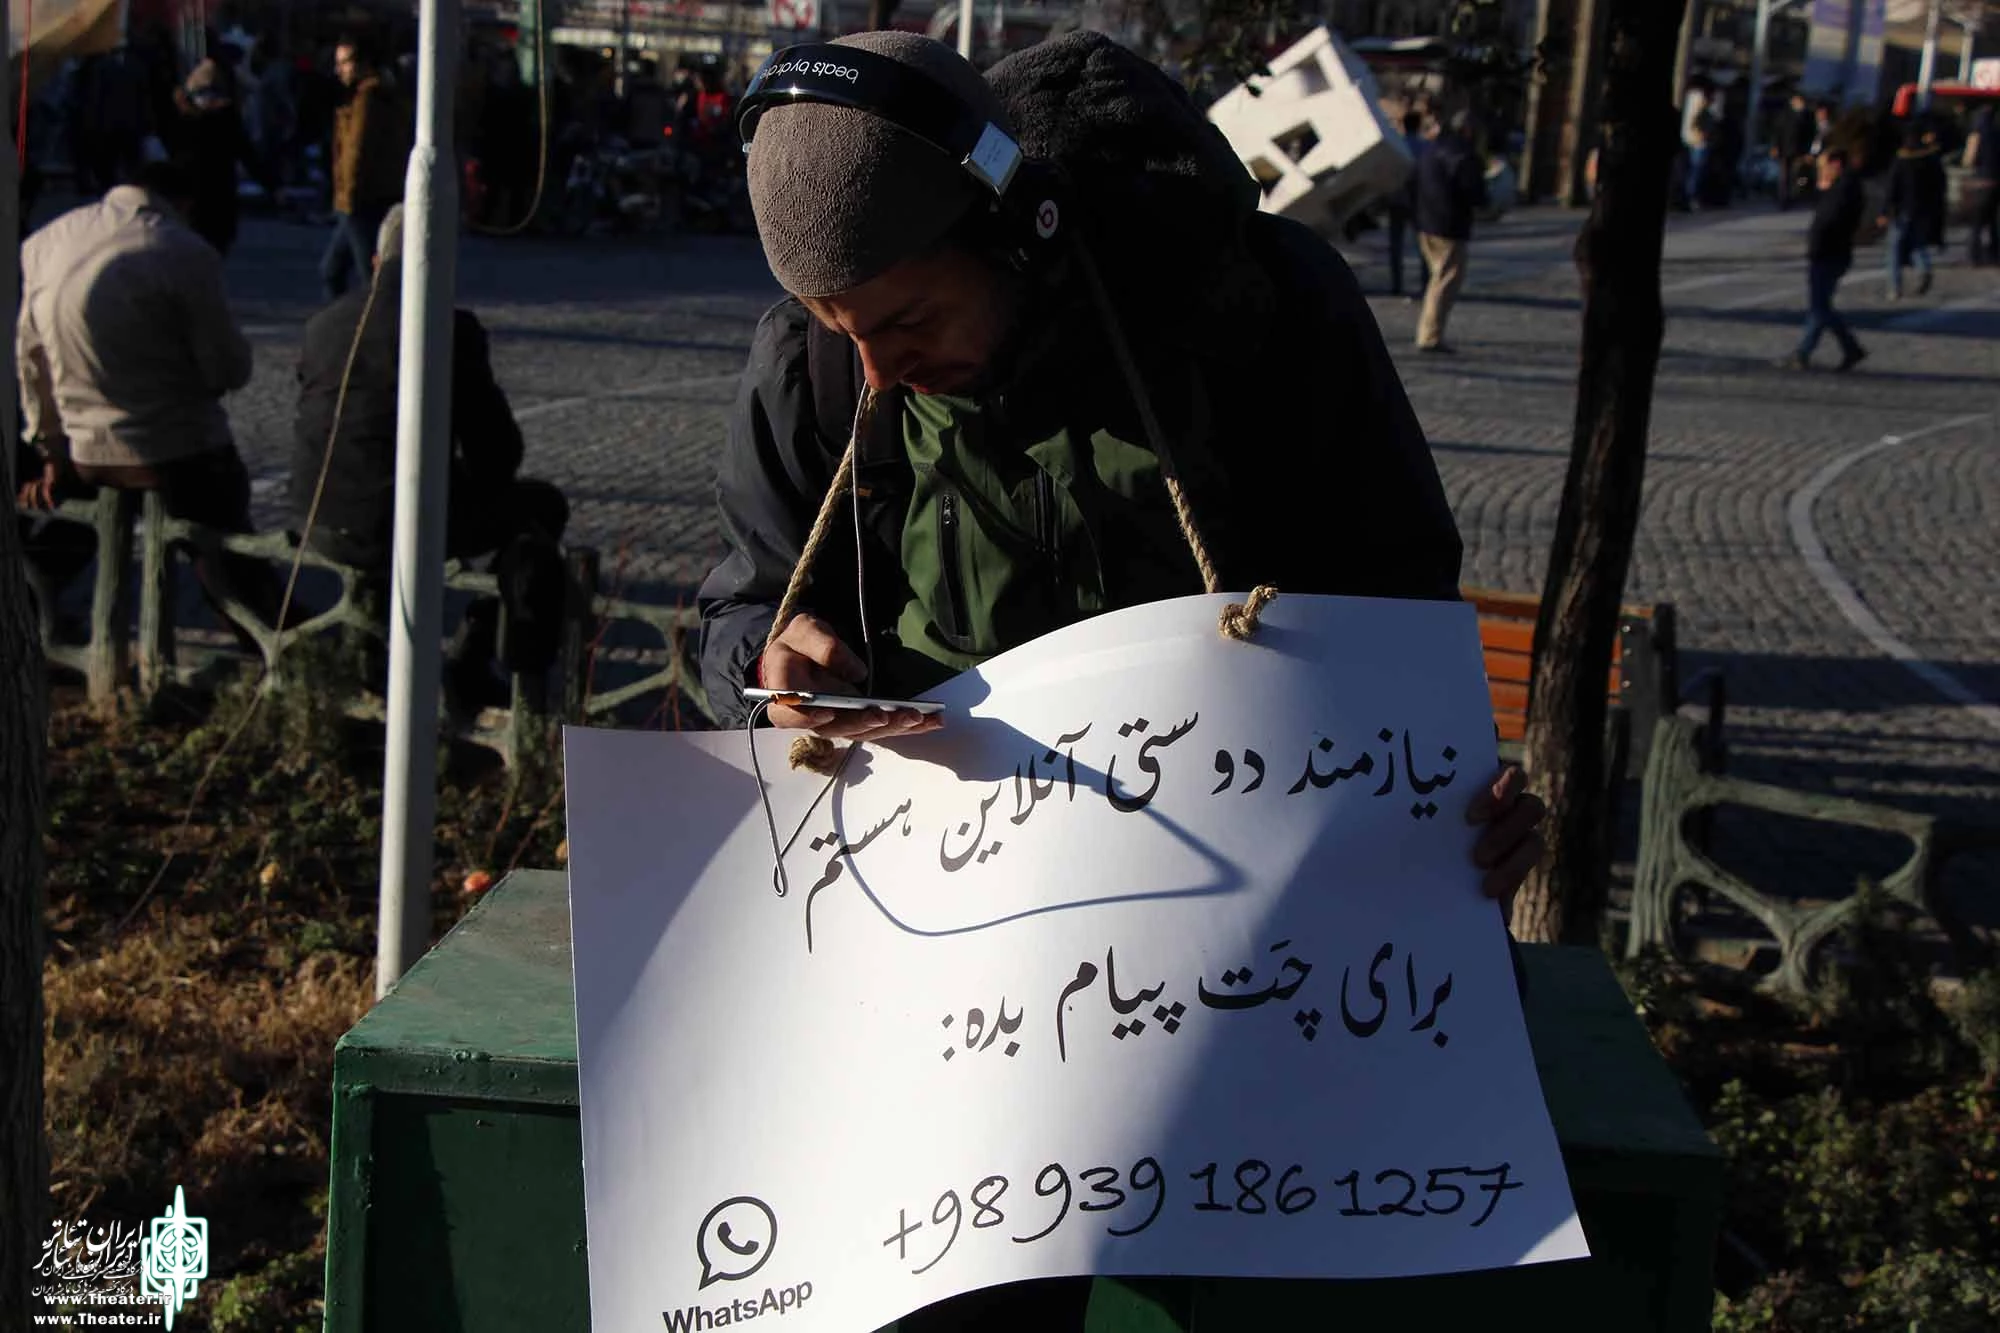 beats by dr.dre
نیازمند دوستی آنلاین هستم
برای چَت پیام بده:
+98 939 186 1257
WhatsApp
ایران تئاتر
www.Theater.ir
www.Theater.ir